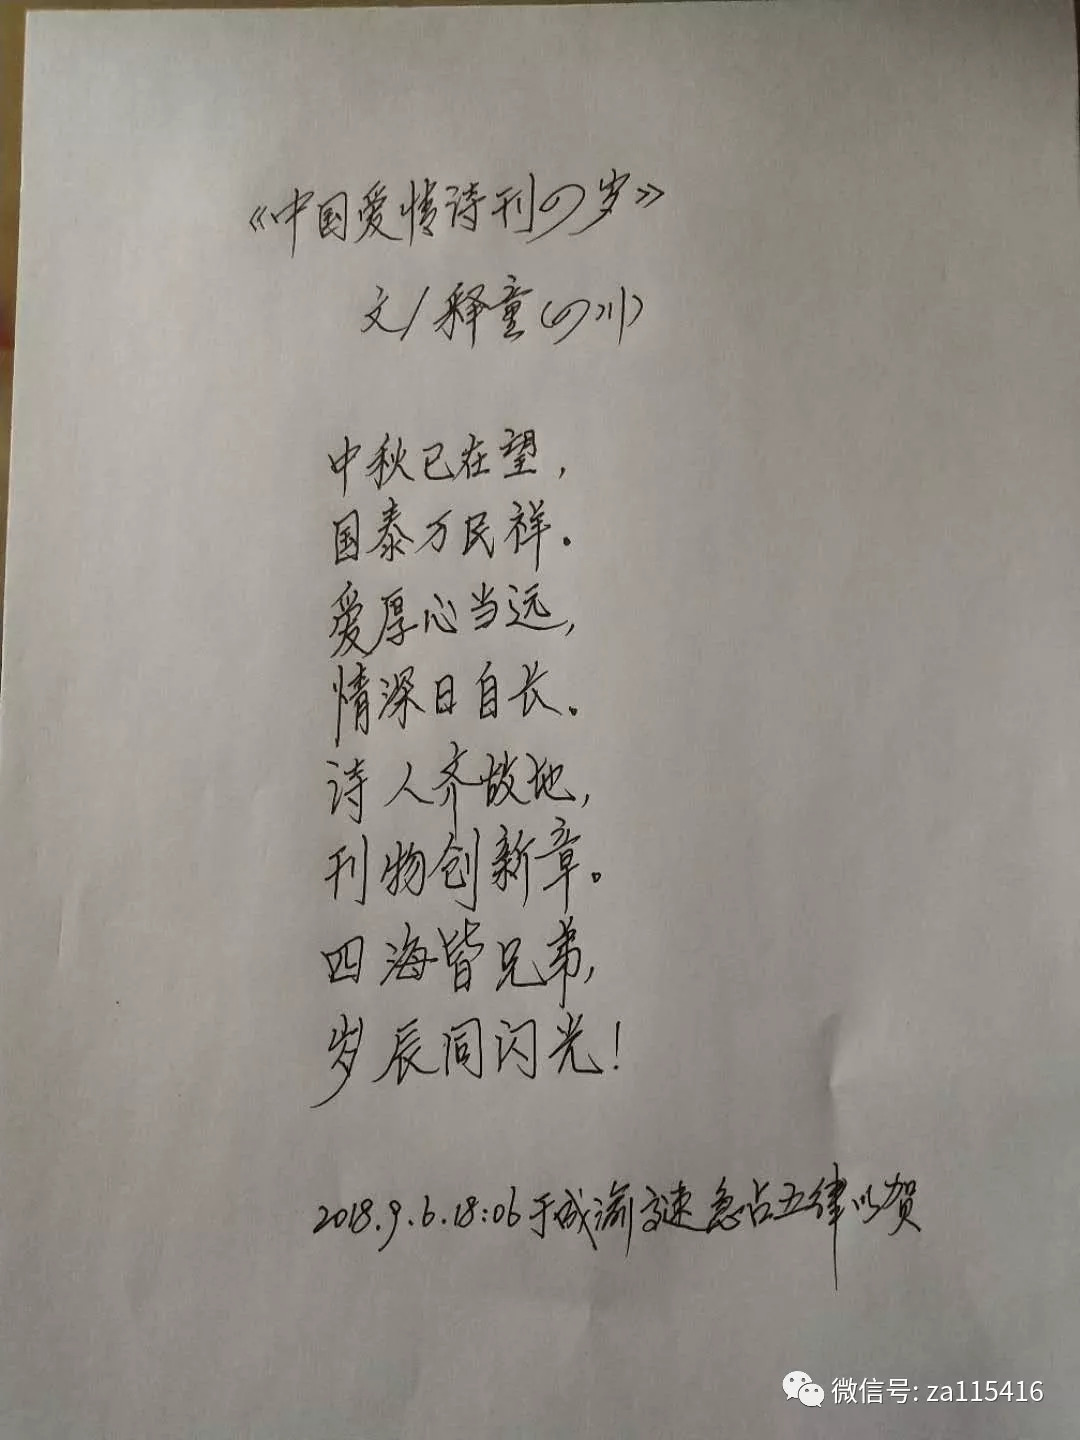 《中国爱情诗刊四岁》
文/释童(四川)
中秋已在望,
国泰万民祥.
爱厚心当远,
情深日自长.
诗人齐故地,
刊物创新章。
四海皆兄弟,
岁辰同闪光!
2018.9.6.18:06于成渝高速急占五律以贺
微信号: za115416